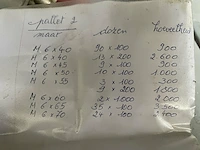 pallet 2
maat dozen hoeveelheid
M 6 x 40 90 x 100 900
M 6 x 40 13 x 200 2600
M 6 x 45 9 x 100 900
M 6 x 50 10 x 100 1000
M 6 x 55 3 x 100 300
9 x 200
M 6 x 60 2 x 1000 2000
M 6 x 65 35 x 100
M 6 x 70 24 x 100